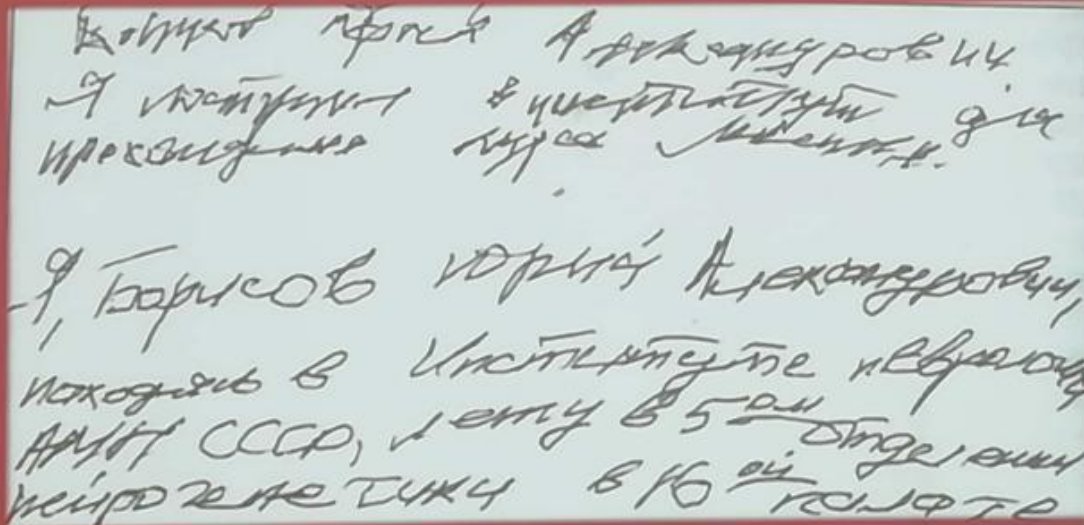 Юрий Александрович
Я поступил в институт для
прохождения курса лечения.
Я, Борисов Юрий Александрович,
находясь в Институте неврологи
АМН СССР, лежу в 5ом отделении
нейрогенетики в 16ой палате